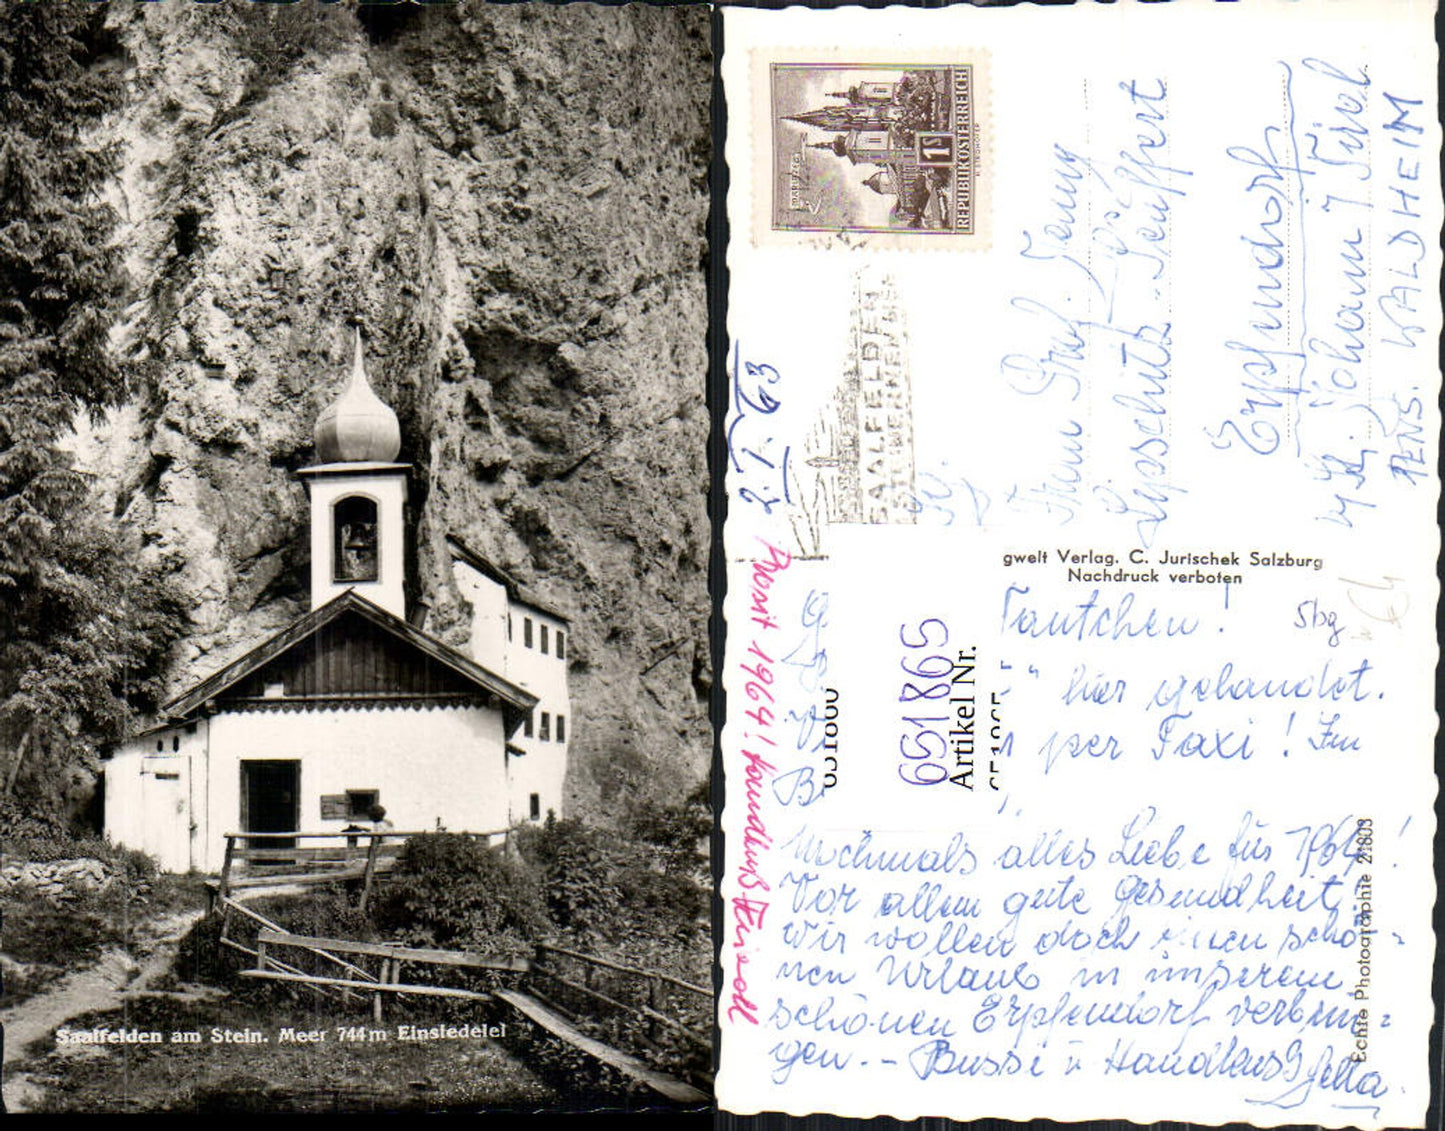 Saalfelden am Stein. Meer 744m Einsiedelei
MARIAZELL
1S
REPUBLIK ÖSTERREICH
SAALFELDEN
AM STEINERNEN MEER
Frau Präs. Jenny
Lipschütz-Seuffert
Erpfendorf
b/ St. Johann i Tirol
PENS. WALDHEIM
gwelt Verlag. C. Jurischek Salzburg
Nachdruck verboten
Sbg
651865
Artikel Nr.
2.I.63
Tantchen!
hier gelandet.
per Taxi! Im
Nochmals alles Liebe für 1964!
Vor allem gute Gesundheit,
wir wollen doch einen schö-
nen Urlaub in unserem
schönen Erpfendorf verbrin-
gen. – Bussi u Handkuss Jetta
Prosit 1964! Handkuß Friedl
Echte Photographie 21803